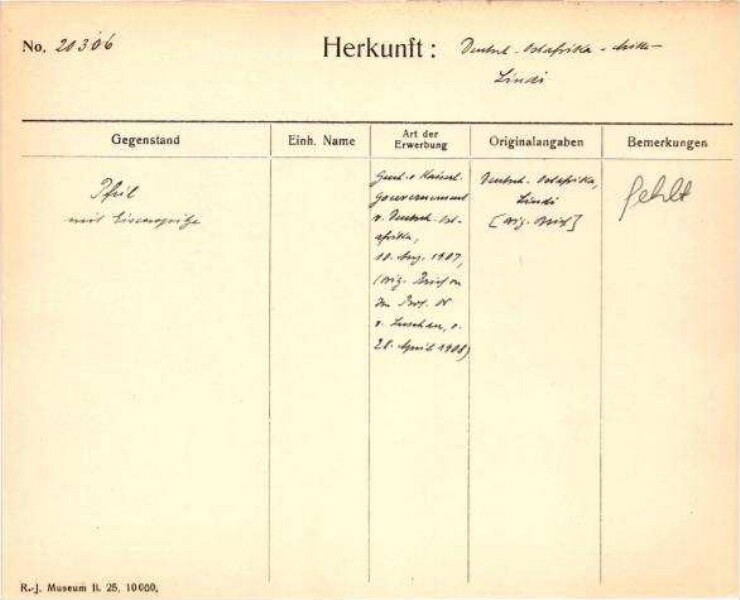 No. 20306
Herkunft: Deutsch-Ostafrika -
Lindi
Gegenstand
Einh. Name
Art der
Erwerbung
Originalangaben
Bemerkungen
Pfeil
mit Eisenspitze
v. Kaiserl.
Gouvernement
v. Deutsch-Ost-
afrika,
10. Aug. 1907,
(orig. Brief an
Prof. Dr
v. Luschan, v.
28. April 1908)
Deutsch-Ostafrika,
Lindi
[orig. Brief]
fehlt
R.-J. Museum II. 25. 10000.